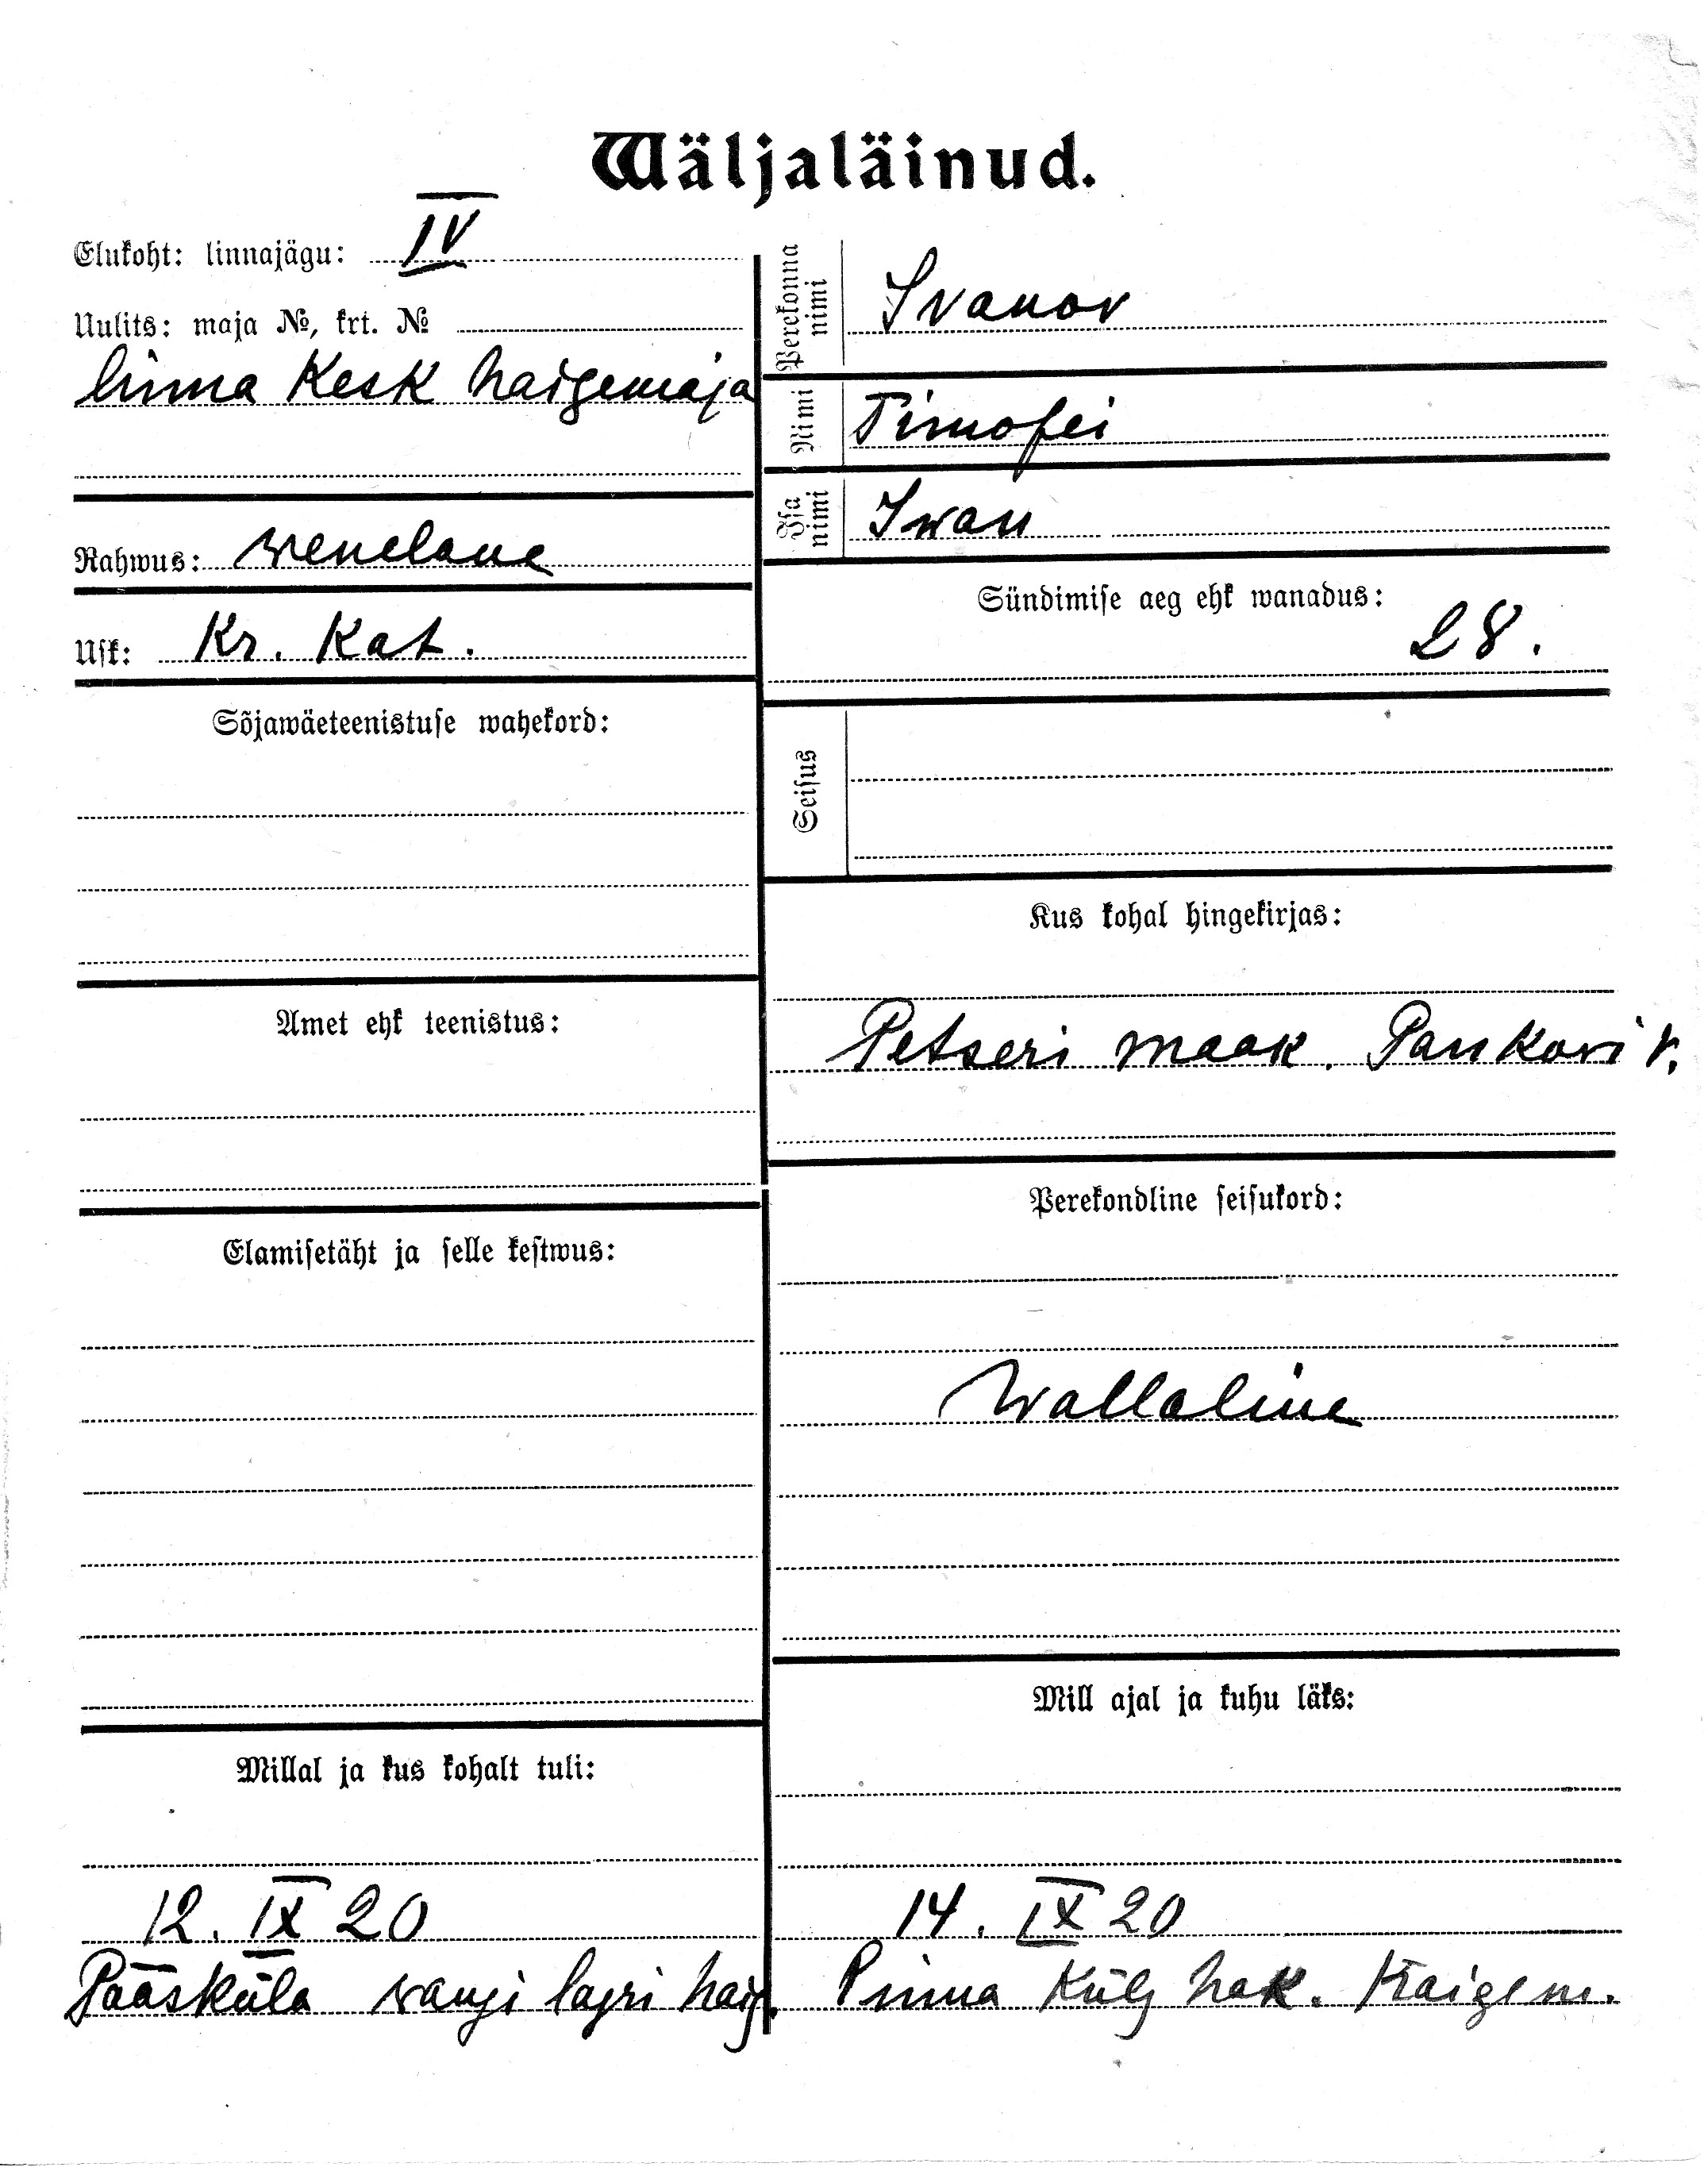 Wäljaläinud.
Elukoht: linnajägu: IV
Uulits: maja №, krt. №
linna Kesk haigemaja
Rahwus: wenelane
Usk: Kr. Kat.
Sõjawäeteenistuse wahekord:
Amet ehk teenistus:
Elamisetäht ja selle kestwus:
Millal ja kus kohalt tuli:
12. IX 20
Pääsküla wangi lagri haig.
Perekonna nimi Ivanov
Nimi Timofei
Isa nimi Iwan
Sündimise aeg ehk wanadus:
28.
Seisus
Kus kohal hingekirjas:
Petseri maak. Pankovi v.
Perekondline seisukord:
Wallaline
Mill ajal ja kuhu läks:
14. IX 20
külg hak. Haigem.